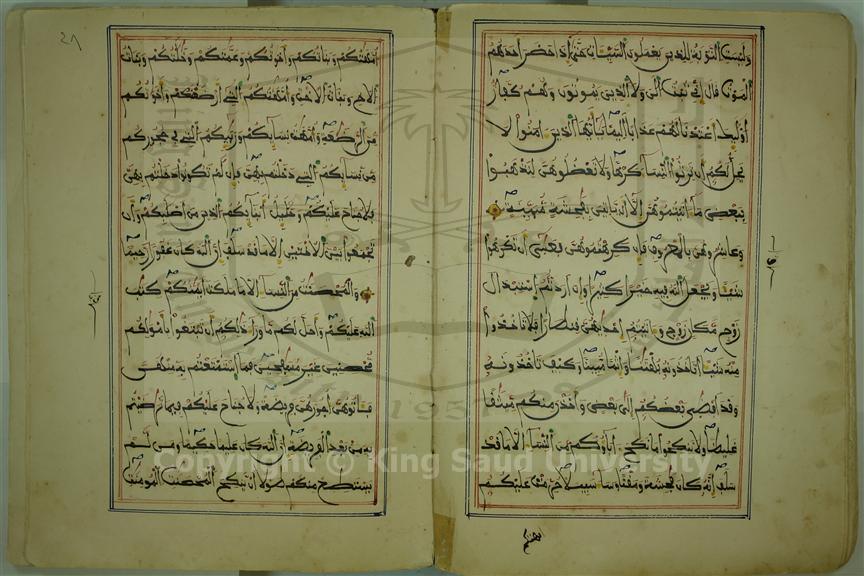 وليست التوبة للذين يعملون السيئات حتى إذا حضر أحدهم
الموت قال إني تبت الآن ولا الذين يموتون وهم كفار
أولئك أعتدنا لهم عذابا أليما يأيها الذين ءامنوا لا
يحل لكم أن ترثوا النساء كرها ولا تعضلوهن لتذهبوا
ببعض ما ءاتيتموهن إلا أن ياتين بفحشة مبينة
وعاشروهن بالمعروف فإن كرهتموهن فعسى أن تكرهوا
شيئا ويجعل الله فيه خيرا كثيرا وإن أردتم استبدال
زوج مكان زوج وءاتيتم إحديهن قنطارا فلا تاخذوا
منه شيئا أتاخذونه بهتنا وإثما مبينا وكيف تاخذونه
وقد أفضى بعضكم إلى بعض وأخذن منكم ميثقا
غليظا ولا تنكحوا ما نكح ءاباؤكم من النساء إلا ما قد
سلف إنه كان فحشة ومقتا وساء سبيلا حرمت عليكم
أمهتكم وبناتكم وأخوتكم وعمتكم وخلتكم وبنات
الاخ وبنات الاخت وأمهتكم التي أرضعنكم وأخوتكم
من الرضعة وأمهت نسائكم وربئبكم التي في حجوركم
من نسائكم التي دخلتم بهن فإن لم تكونوا دخلتم بهن
فلا جناح عليكم وحلئل أبنائكم الذين من أصلبكم وأن
تجمعوا بين الاختين إلا ما قد سلف إن الله كان غفورا رحيما
والمحصنت من النساء إلا ما ملكت أيمنكم كتب
الله عليكم وأحل لكم ما وراء ذلكم أن تبتغوا بأمولكم
محصنين غير مسفحين فما استمتعتم به منهن
فئاتوهن أجورهن فريضة ولا جناح عليكم فيما ترضيتم
به من بعد الفريضة إن الله كان عليما حكيما ومن لم
يستطع منكم طولا أن ينكح المحصنت المومنت
Copyright © King Saud University
1957